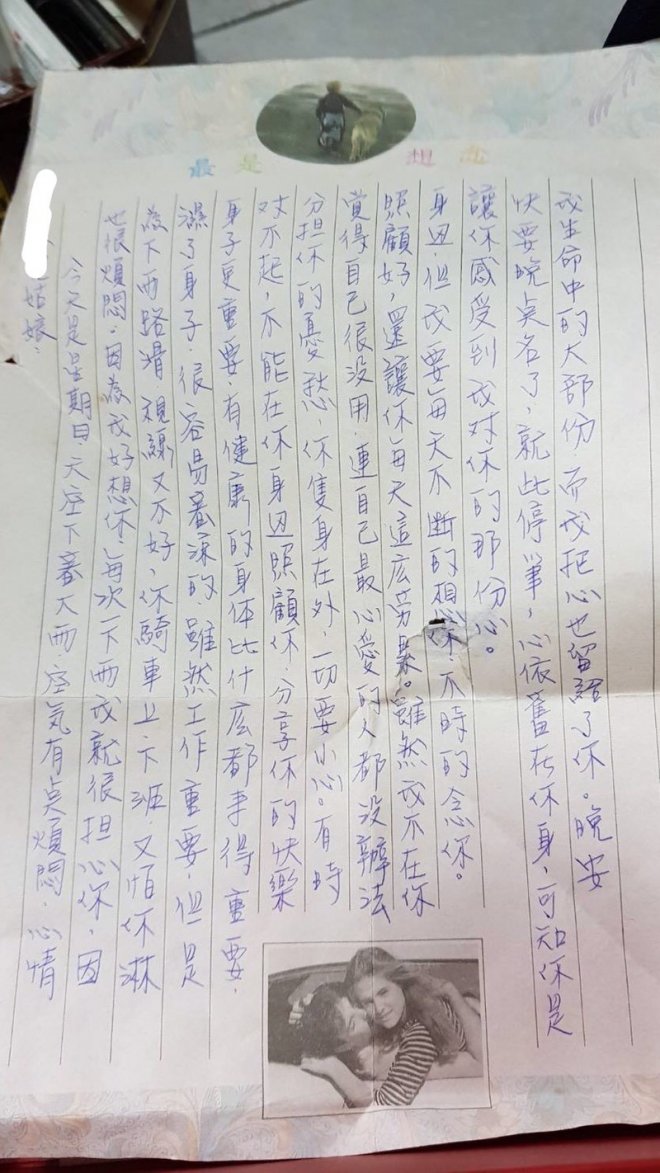 最是 想念
姑娘:
今天是星期日 天空下著大雨 空氣有点煩悶、心情
也很煩悶。因為我好想你,每次一下雨我就很担心你,因
為下雨路滑 視線又不好、你騎車上下班、又怕你淋
濕了身子、很容易著涼的、雖然工作重要,但是
身子更重要,有健康的身体比什広都來得重要.
对不起,不能在你身边照顧你、分享你的快樂
分担你的憂愁,你隻身在外,一切要小心。有時
覚得自己很没用.連自己最心愛的人都没辦法
照顧好,還讓你每天這広勞累。雖然我不在你
身边.但我要每天不斷的想你.不時的念你。
讓你感受到我对你的那份心。
快要晚点名了,就此停筆,心依舊在你身,可知你是
我生命中的大部份 而我把心也留給了你。晚安